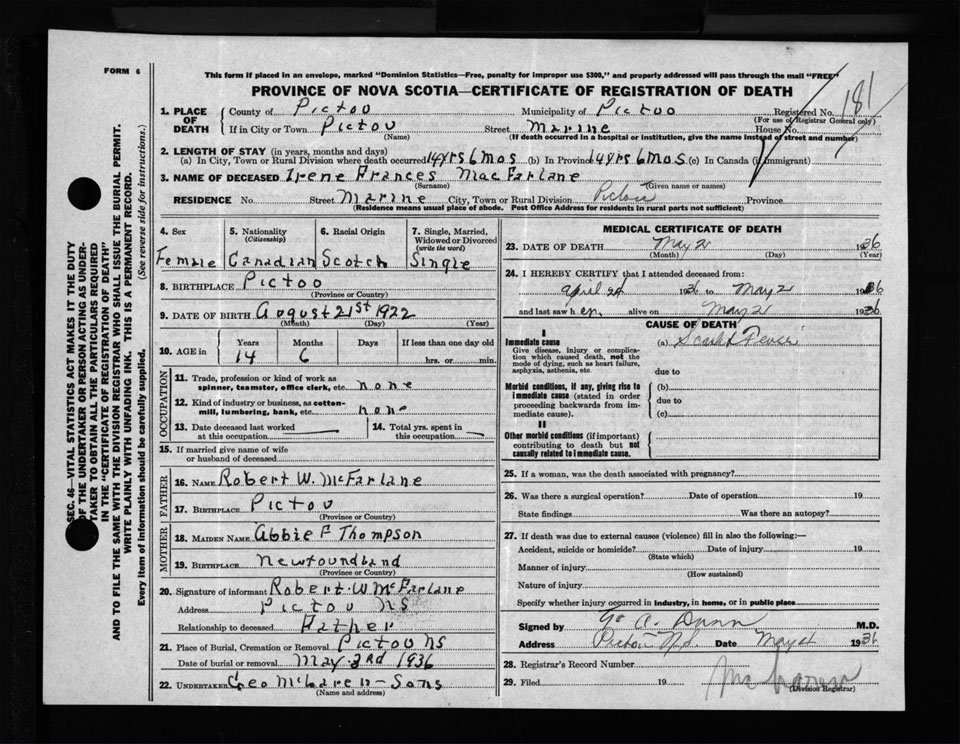 FORM 6
This form if placed in an envelope, marked "Dominion Statistics—Free, penalty for improper use $300," and properly addressed will pass through the mail "FREE"
PROVINCE OF NOVA SCOTIA—CERTIFICATE OF REGISTRATION OF DEATH
1. PLACE OF DEATH
County of Pictou Municipality of Pictou Registered No. 181
(For use of Registrar General only)
If in City or Town Pictou Street Marine House No.
(Name) (If death occurred in a hospital or institution, give the name instead of street and number)
2. LENGTH OF STAY (in years, months and days)
(a) In City, Town or Rural Division where death occurred 14yrs 6mos (b) In Province 14yrs 6mos. (c) In Canada (if immigrant)
3. NAME OF DECEASED Irene Frances MacFarlane
(Surname) (Given name or names)
RESIDENCE No. Street Marine City, Town or Rural Division Pictou Province
(Residence means usual place of abode. Post Office Address for residents in rural parts not sufficient)
4. Sex
Female
5. Nationality (Citizenship)
Canadian
6. Racial Origin
Scotch
7. Single, Married, Widowed or Divorced (write the word)
Single
8. BIRTHPLACE Pictou
(Province or Country)
9. DATE OF BIRTH August 21st 1922
(Month) (Day) (Year)
10. AGE in
Years Months Days If less than one day old
14 6 hrs. or min.
OCCUPATION
11. Trade, profession or kind of work as spinner, teamster, office clerk, etc. none
12. Kind of industry or business, as cotton-mill, lumbering, bank, etc. none
13. Date deceased last worked at this occupation
14. Total yrs. spent in this occupation
15. If married give name of wife or husband of deceased
FATHER
16. NAME Robert W. McFarlane
17. BIRTHPLACE Pictou
(Province or Country)
MOTHER
18. MAIDEN NAME Abbie F Thompson
19. BIRTHPLACE Newfoundland
(Province or Country)
20. Signature of informant Robert W McFarlane
Address Pictou NS
Relationship to deceased Father
21. Place of Burial, Cremation or Removal Pictou NS
Date of burial or removal May 3rd 1936
22. UNDERTAKER Geo McLaren - Sons
(Name and address)
MEDICAL CERTIFICATE OF DEATH
23. DATE OF DEATH May 2 1936
(Month) (Day) (Year)
24. I HEREBY CERTIFY that I attended deceased from:
April 28 1936 to May 2 1936
and last saw her alive on May 2 1936
CAUSE OF DEATH
I
Immediate cause
Give disease, injury or complication which caused death, not the mode of dying, such as heart failure, asphyxia, asthenia, etc.
(a) Scarlet Fever
due to
Morbid conditions, if any, giving rise to immediate cause (stated in order proceeding backwards from immediate cause).
(b)
due to
(c)
II
Other morbid conditions (if important) contributing to death but not causally related to immediate cause.
25. If a woman, was the death associated with pregnancy?
26. Was there a surgical operation? Date of operation 19
State findings Was there an autopsy?
27. If death was due to external causes (violence) fill in also the following:—
Accident, suicide or homicide? Date of injury 19
(State which)
Manner of injury
(How sustained)
Nature of injury
Specify whether injury occurred in industry, in home, or in public place
Signed by G. A. Dunn M.D.
Address Pictou N.S. Date May 1936
28. Registrar's Record Number
29. Filed 19
(Division Registrar)
SEC. 46—VITAL STATISTICS ACT MAKES IT THE DUTY
OF THE UNDERTAKER OR PERSON ACTING AS UNDER-
TAKER TO OBTAIN ALL THE PARTICULARS REQUIRED
IN THE "CERTIFICATE OF REGISTRATION OF DEATH"
AND TO FILE THE SAME WITH THE DIVISION REGISTRAR WHO SHALL ISSUE THE BURIAL PERMIT.
WRITE PLAINLY WITH UNFADING INK. THIS IS A PERMANENT RECORD.
Every item of information should be carefully supplied. (See reverse side for instructions.)